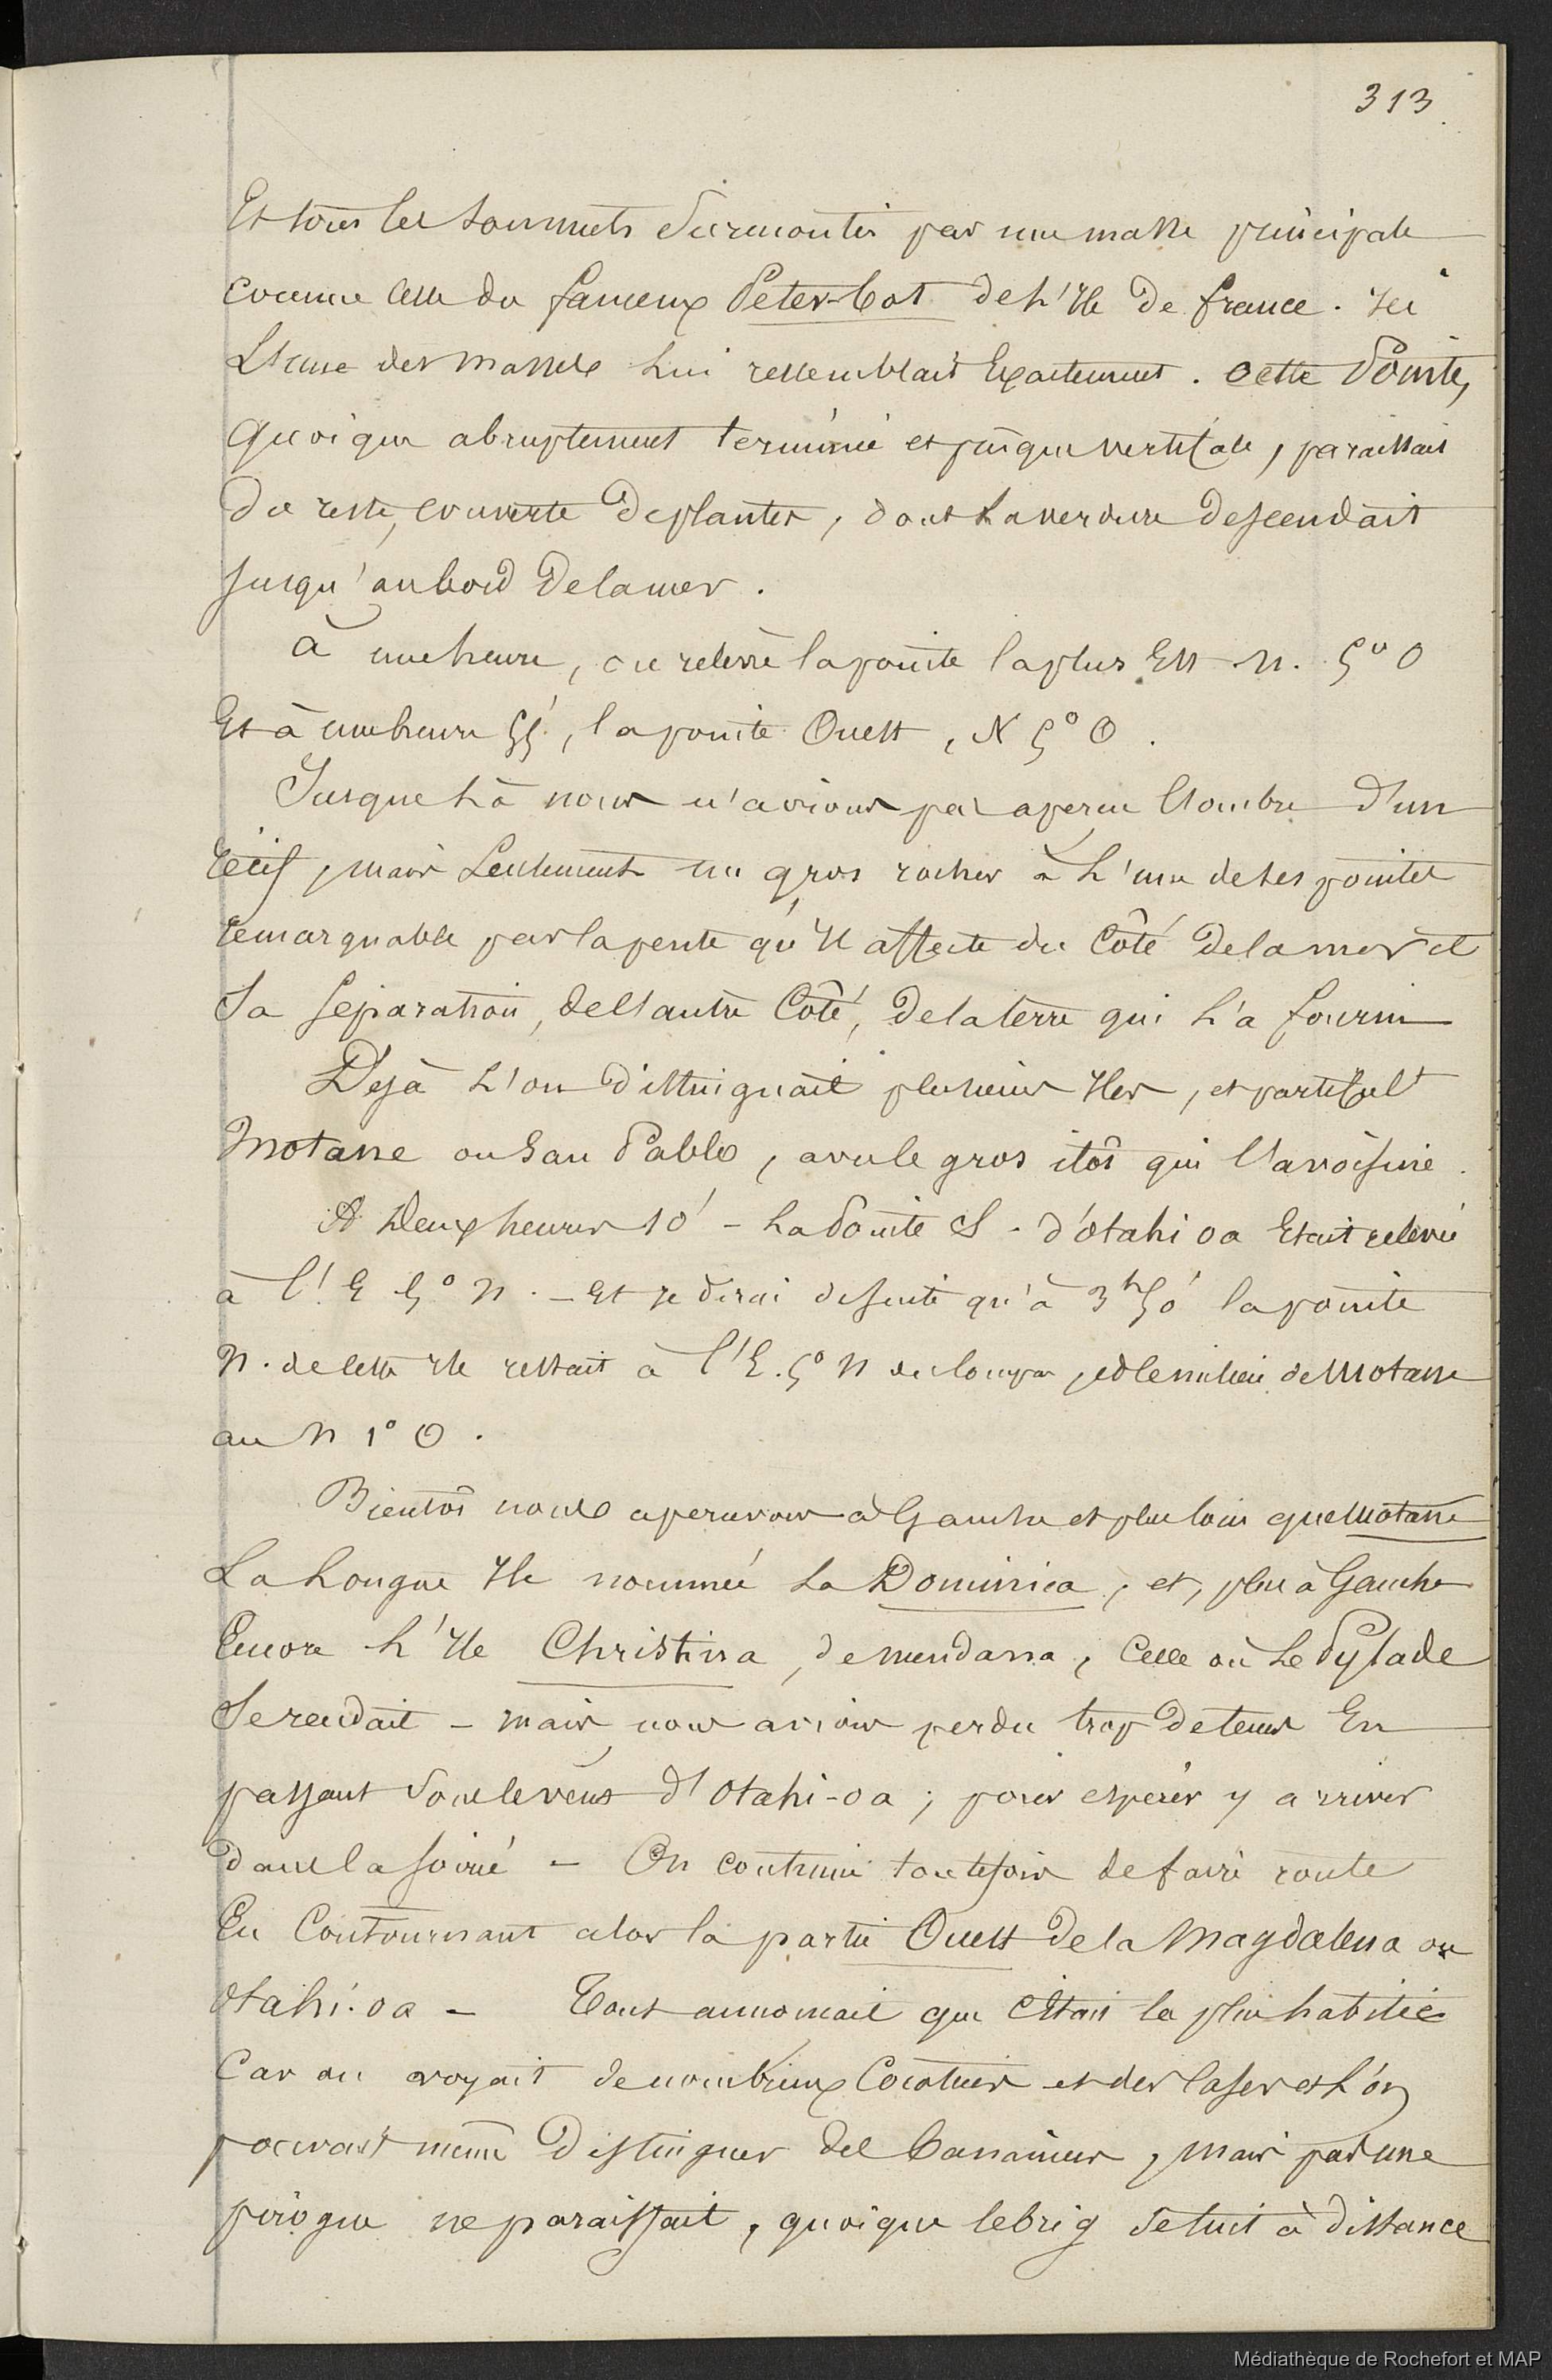 313
Et tous les sommets surmontés par une masse principale
comme celle du fameux Peter-bot de l'Ile de france. Ici
L'une des masses lui ressemblait Exactement. Cette Pointe,
quoique abruptement terminée et presque verticale, paraissait
du reste, couverte de plantes, dont la verdure descendait
jusqu'au bord de la mer.
à une heure, on relève la pointe la plus Est N. 5° O
Et à une heure 55', la pointe Ouest, N 5° O.
Jusque là nous n'avions pas aperçu l'ombre d'un
récif, mais seulement un gros rocher à l'une de ses pointes
remarquable par la pente qu'Il affecte du Côté de la mer et
sa séparation, de l'autre Côté, de la terre qui l'a fourni
Déjà l'on distinguait plusieurs Iles, et particult
Motane ou San Pablo, avec le gros ilôt qui l'avoisine.
A Deux heures 10' - La Pointe S. d'Otahi oa Etait relevée
à l'E 5° N. - Et je dirai de suite qu'à 3h 50' la pointe
N. de cette Ile restait à l'E. 5° N du compas, et le milieu de Motane
au N 1° O.
Bientôt nous aperçevons à Gauche et plus loin que Motane
La Longue Ile nommée La Dominica, et, plus à Gauche
Encore l'Ile Christina, de mendana, Celle où Le Pylade
Se rendait - mais nous avions perdu trop de tems En
passant sous le vent d'Otahi-oa; pour espérer y arriver
dans la soirée - On continue toutefois de faire route
En Contournant alors la partie Ouest de la Magdalena ou
Otahi-oa - Tout annonçait que C'était la plus habitée
Car on voyait de nombreux Cocotiers et des Cases et l'on
pouvait même distinguer des bananiers, mais pas une
pirogue ne paraissait, quoique le brig se tint à distance
Médiathèque de Rochefort et MAP